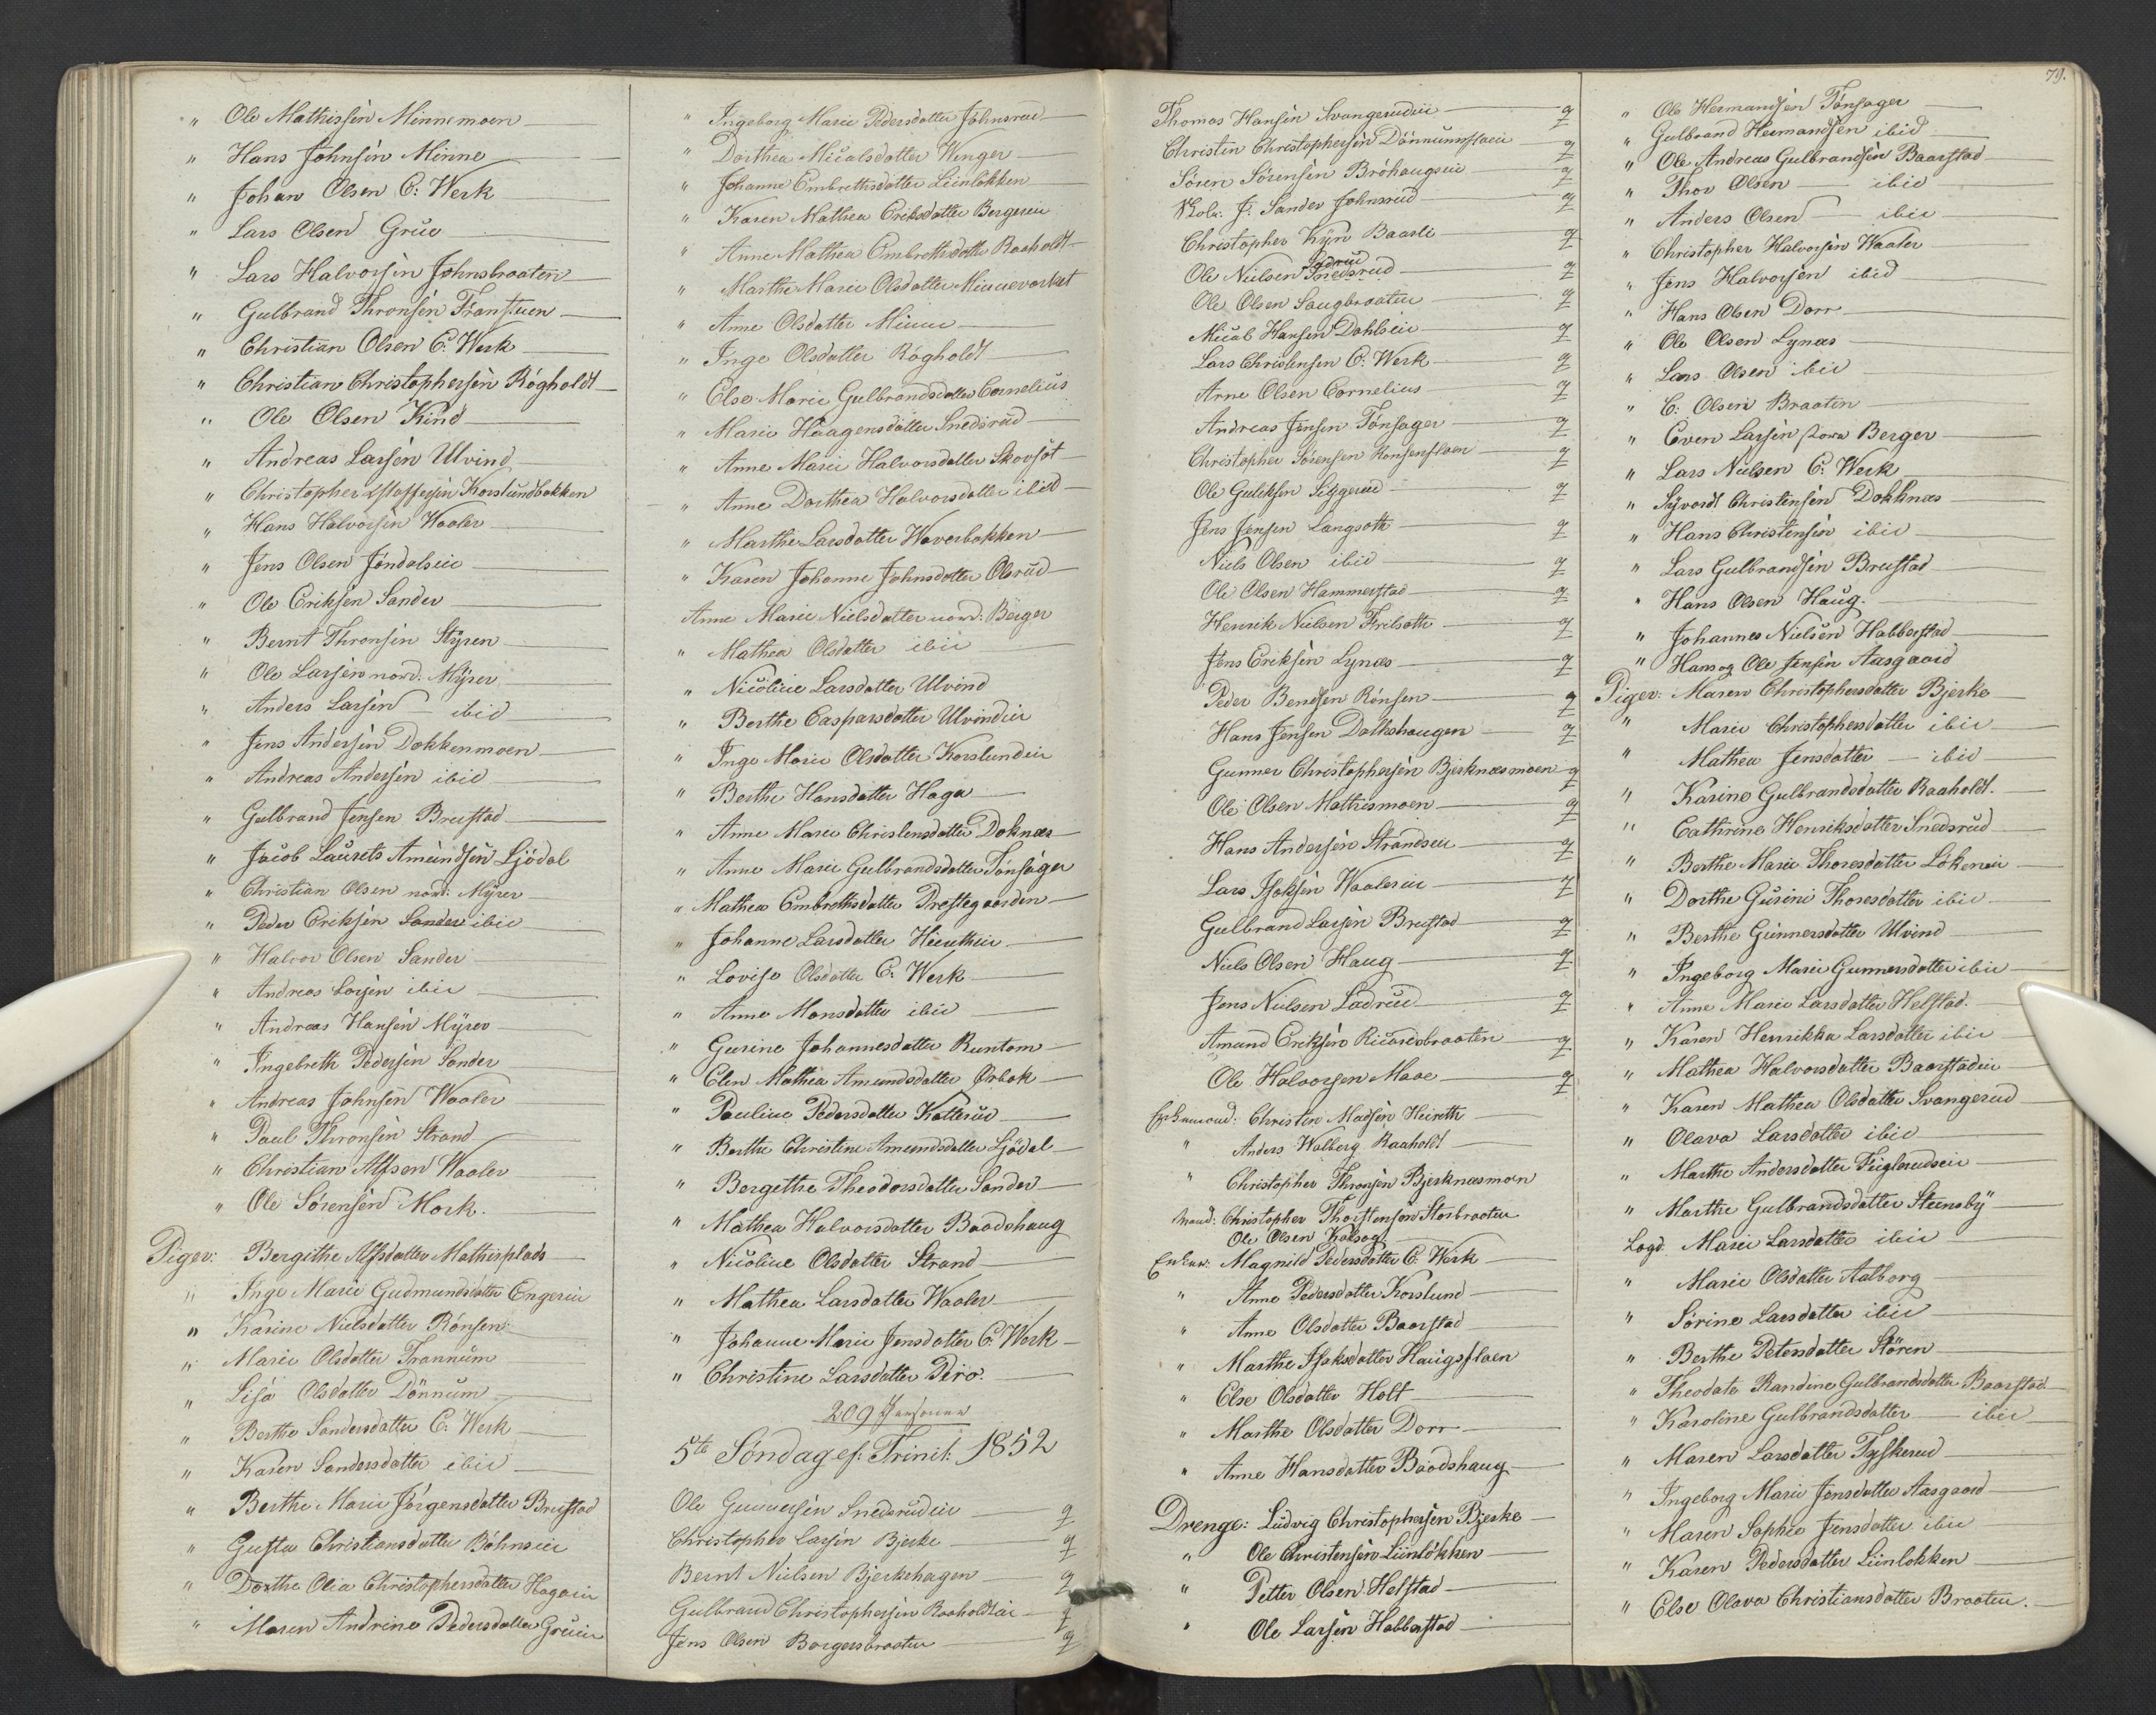 " Ole Mathissen Minnemoen
" Hans Johnsen Minne
" Johan Olsen E: Werk
" Lars Olsen Grue
" Lars Halvorsen Johnsbraaten
" Gulbrand Thronsen Transtuen
" Christian Olsen E: Werk
" Christian Christophersen Rögholdt
" Ole Olsen Kind
" Andreas Larsen Ulvind
" Christopher Korslundbakken
" Hans Halvorsen Waaler
" Jens Olsen Jöndalseie
" Ole Eriksen Sander
" Bernt Thronsen Styren
" Ole Larsen nord: Myrer
" Anders Larsen ibid
" Jens Andersen Dokkenmoen
" Andreas Andersen ibid
" Gulbrand Jensen Brustad
" Jacob Laurits Amundsen Ljödal
" Christian Olsen nord: Myrer
" Peder Eriksen Sander ibid
" Halvor Olsen Sander
" Andreas Larsen ibid
" Andreas Hansen Myrer
" Ingebreth Pedersen Sander
" Andreas Johnsen Waaler
" Paul Thronsen Strand
" Christian Alfsen Waaler
" Ole Sörensen Mork.
Piger: Bergithe Alfsdatter Mathisplads
" Inge Marie Gudmundsdatter Engerie
" Karine Nielsdatter Rönsen
" Marie Olsdatter Trannum
" Lisa Olsdatter Dönnum
" Berthe Sandersdatter E: Werk
" Karen Sandersdatter ibid
" Berthe Marie Jörgensdatter Brustad
" Gusta Christiansdatter Böhnseie
" Dorthe Olia Christophersdatter Hagaeie
" Maren Andrine Pedersdatter Grueie
" Ingeborg Marie Pedersdatter Johnsrud
" Dorthea Micalsdatter Winger
" Johanne Embrethsdatter Liinlökken
" Karen Mathea Eriksdatter Bergereie
" Anne Mathea Embrethsdatter Raaholdt
" Marthe Marie Olsdatter Minnevarket
" Anne Olsdatter Minne
" Inge Olsdatter Rögholdt
" Else Marie Gulbrandsdatter Cornelius
" Marie Haagensdatter Snedsrud
" Anne Marie Halvorsdatter Skovsöt
" Anne Dorthea Halvorsdatter ibid
" Marthe Larsdatter Haverbakken
" Karen Johanne Johnsdatter Olsrud
Anne Marie Nielsdatter nord: Berger
" Mathea Olsdatter ibid
" Nicoline Larsdatter Ulvind
" Berthe Caspersdatter Ulvindeie
" Inge Marie Olsdatter Korslundeie
" Berthe Hansdatter Haga
" Anne Marie Christensdatter Doknæs
" Anne Marie Gulbrandsdatter Tönsager
" Mathea Embrethsdatter Prestegaarden
" Johanne Larsdatter
" Lovise Olsdatter E: Werk
" Anne Monsdatter ibid
" Gurine Johannesdatter Runtom
" Elen Mathea Amundsdatter Ørbæk
" Pauline Pedersdatter Katterud
" Berthe Christine Amundsdatter Ljödal
" Bergethe Theodorsdatter Sander
" Mathea Halvorsdatter Baadshaug
" Nicoline Olsdatter Strand
" Mathea Larsdatter Waaler
" Johanne Marie Jensdatter E: Werk
" Christine Larsdatter Piro.
209 Personer
5te Söndag ef: Trinit: 1852
Ole Gunnersen Snedsrudeie
Christopher Larsen Bjerke
Bernt Nielsen Bjerkehagen
Gulbrand Christophersen Raaholdteie
Jens Olsen Borgersbraaten
Thomas Hansen Svangerudeie
Christen Christophersen Dönnumsflaen
Sören Sörensen Bröhaugseie
Skolr. J. Sander Johnsrud
Christopher Baarli
Ladrud
Ole Nielsen Snedsrud
Ole Olsen Saugbraaten
Micael Hansen Dahlseie
Lars Christensen E: Werk
Arne Olsen Cornelius
Andreas Jensen Tönsager
Christopher Sörensen Ronsenflaen
Ole Guliksen Siggerud
Jens Jensen Langseth
Niels Olsen ibid
Ole Olsen Hammerstad
Henrik Nielsen Frilseth
Jens Eriksen Lynæs
Peder Bendsen Rönsen
Hans Jensen Dalkshaugen
Gunner Christophersen Bjerknæsmoen
Ole Olsen Mathismoen
Hans Andersen Strandseie
Lars Isaksen Waalereie
Gulbrand Larsen Brustad
Niels Olsen Haug
Jens Nielsen Ladrud
Amund Eriksen Ricardsbraaten
Ole Halvorsen Maae
Enkemænd: Christen Madsen
" Anders Walberg Raaholdt
" Christopher Thronsen Bjerknæsmoen
Mænd: Christopher Thorstensen Storbraaten
Ole Olsen
Enker: Magnild Pedersdatter E: Werk
" Anne Pedersdatter Korslund
" Anne Olsdatter Baarstad
" Marthe Isaksdatter Haugsflaen
" Else Olsdatter Holt
" Marthe Olsdatter Dorr
" Anne Hansdatter Baadshaug
Drenge: Ludvig Christophersen Bjerke
" Ole Christensen Liinlökken
" Petter Olsen Helstad
" Ole Larsen Habberstad
79.
" Ole Hermandsen Tönsager
" Gulbrand Hermandsen ibid
" Ole Andreas Gulbrandsen Baarstad
" Thor Olsen ibid
" Anders Olsen ibid
" Christopher Halvorsen Waaler
" Jens Halvorsen ibid
" Hans Olsen Dorr
" Ole Olsen Lynæs
" Lars Olsen ibid
" E: Olsen Braaten
" Even Larsen store Berger
" Lars Nielsen E: Werk
" Syvardt Christensen Dokknæs
" Hans Christensen ibid
" Lars Gulbrandsen Brustad
" Hans Olsen Haug.
" Johannes Nielsen Habberstad
" Hans og Ole Jensen Aasgaard
Piger: Maren Christophersdatter Bjerke
" Marie Christophersdatter ibid
" Mathea Jensdatter ibid
" Karine Gulbrandsdatter Raaholdt.
" Cathrine Henriksdatter Snedsrud
" Berthe Marie Thoresdatter Lökeneie
" Dorthe Gurine Thoresdatter ibid
" Berthe Gunnersdatter Ulvind
" Ingeborg Marie Gunnersdatter ibid
" Anne Marie Larsdatter Helstad.
" Karen Henrikka Larsdatter ibid
" Mathea Halvorsdatter Baarstadeie
" Karen Mathea Olsdatter Svangerud
" Olava Larsdatter ibid
" Marthe Andersdatter Fuglerudseie
" Marthe Gulbrandsdatter Steensby
Logd. Marie Larsdatter ibid
" Marie Olsdatter Aalborg
" Sörine Larsdatter ibid
" Berthe Petersdatter Stören
" Theodate Randine Gulbrandsdatter Baarstad
" Karoline Gulbrandsdatter ibid
" Maren Larsdatter Tyskerud
" Ingeborg Marie Jensdatter Aasgaard
" Maren Sophie Jensdatter ibid
" Karen Pedersdatter Liinlökken
" Else Olava Christiansdatter Braaten.